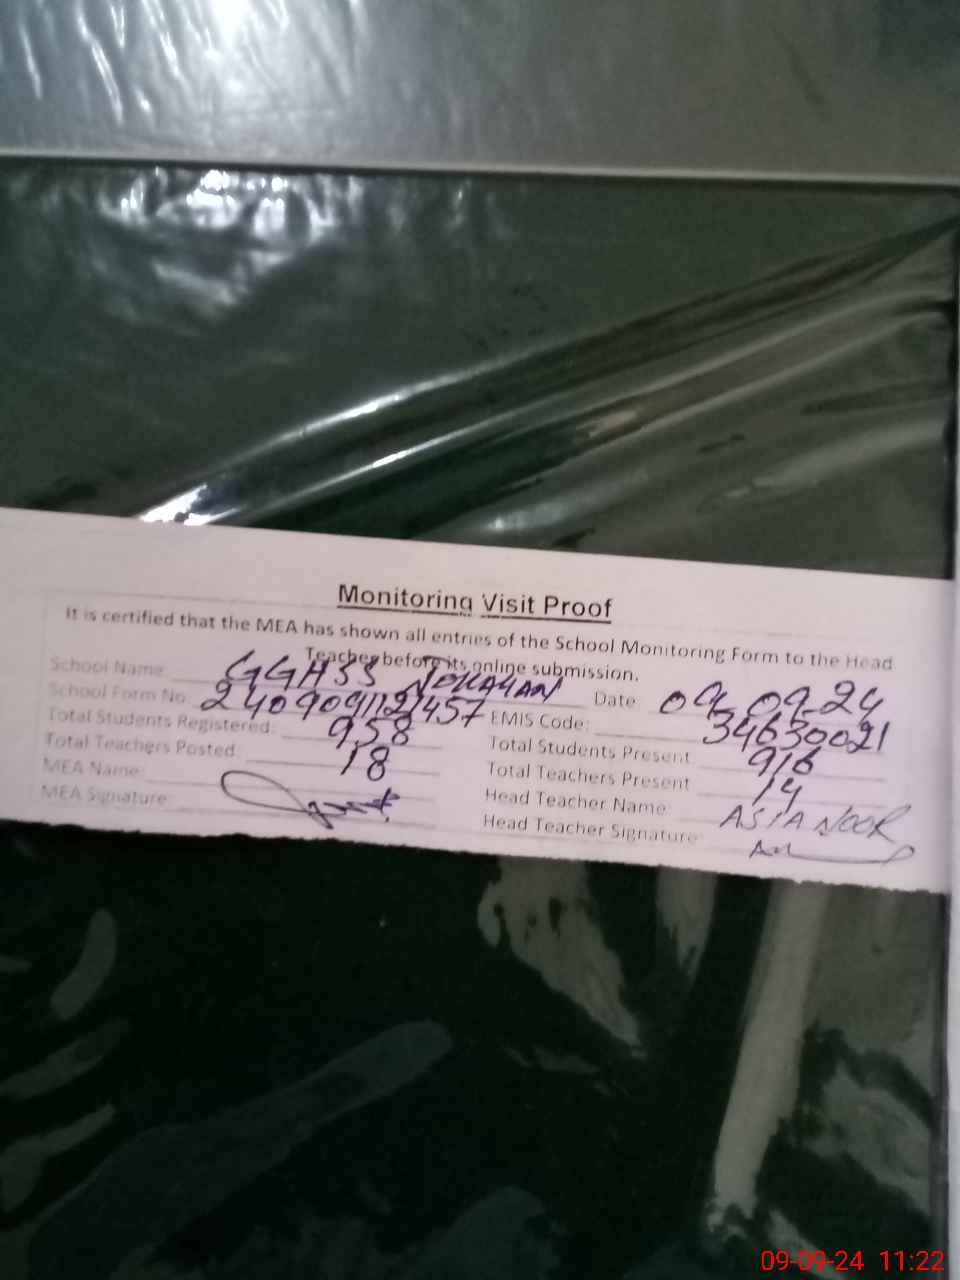 Monitoring Visit Proof
It is certified that the MEA has shown all entries of the School Monitoring Form to the Head
Teacher before its online submission.
School Name GGHSS Date 09-09-24
School Form No. 240909112457 EMIS Code: 34630021
Total Students Registered: 958 Total Students Present 916
Total Teachers Posted: 18 Total Teachers Present 14
MEA Name: Head Teacher Name ASIA NOOR
MEA Signature: Head Teacher Signature
09-09-24 11:22